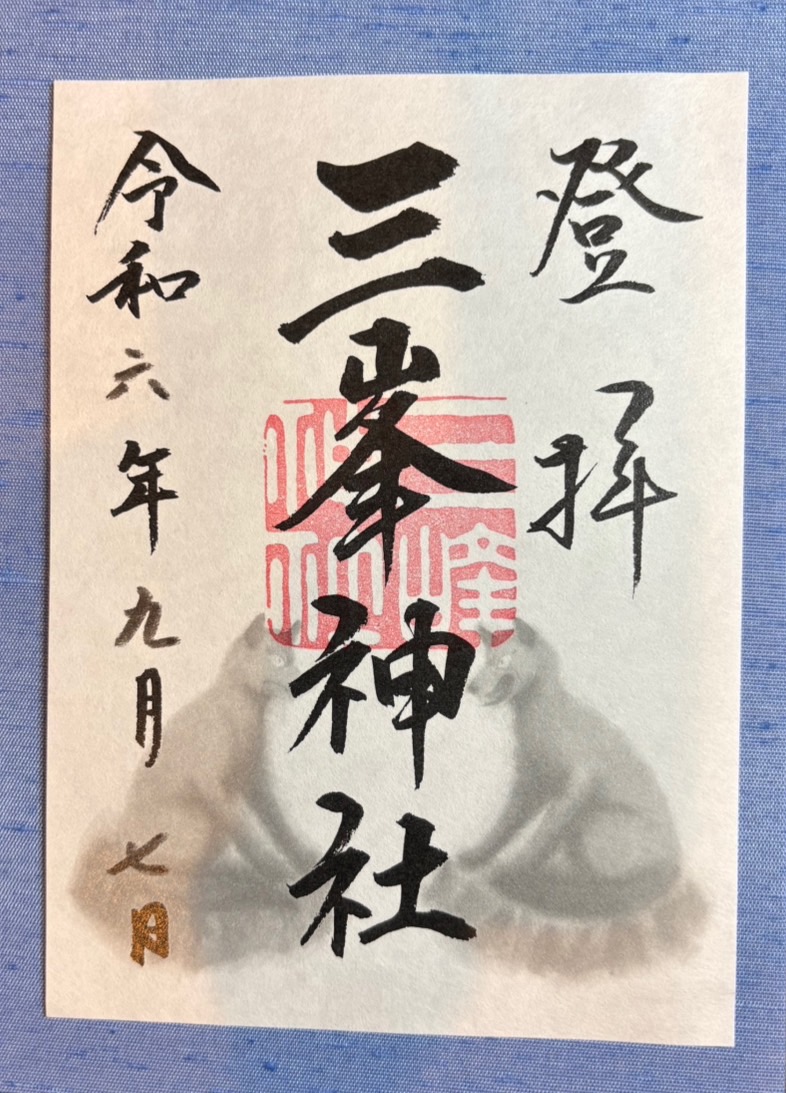 登拝
三峯神社
令和六年九月七日